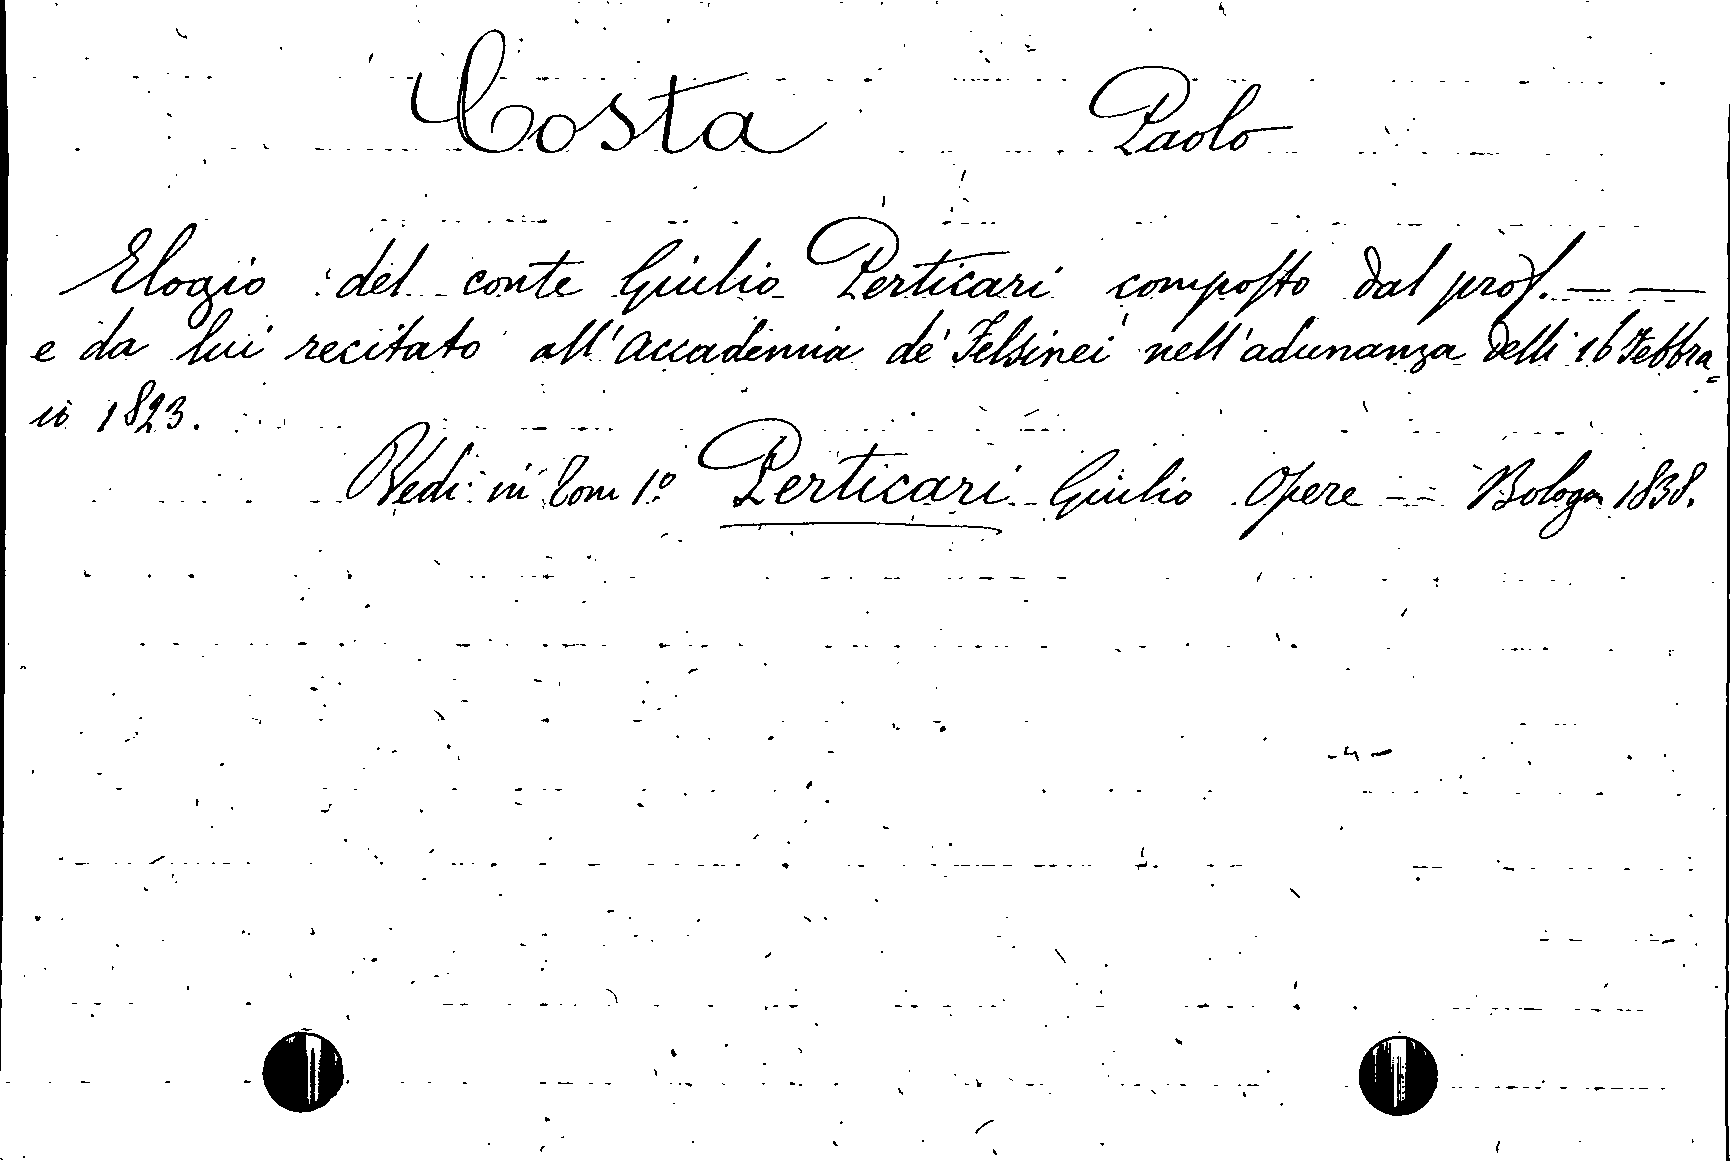 Costa Paolo
Elogio del conte Giulio Perticari composto dal prof. — —
e da lui recitato all'Accademia de' Felsinei nell'adunanza delli 16 Febbra=
io 1823.
Vedi in Tom 1º Perticari Giulio Opere -- Bologna 1838.